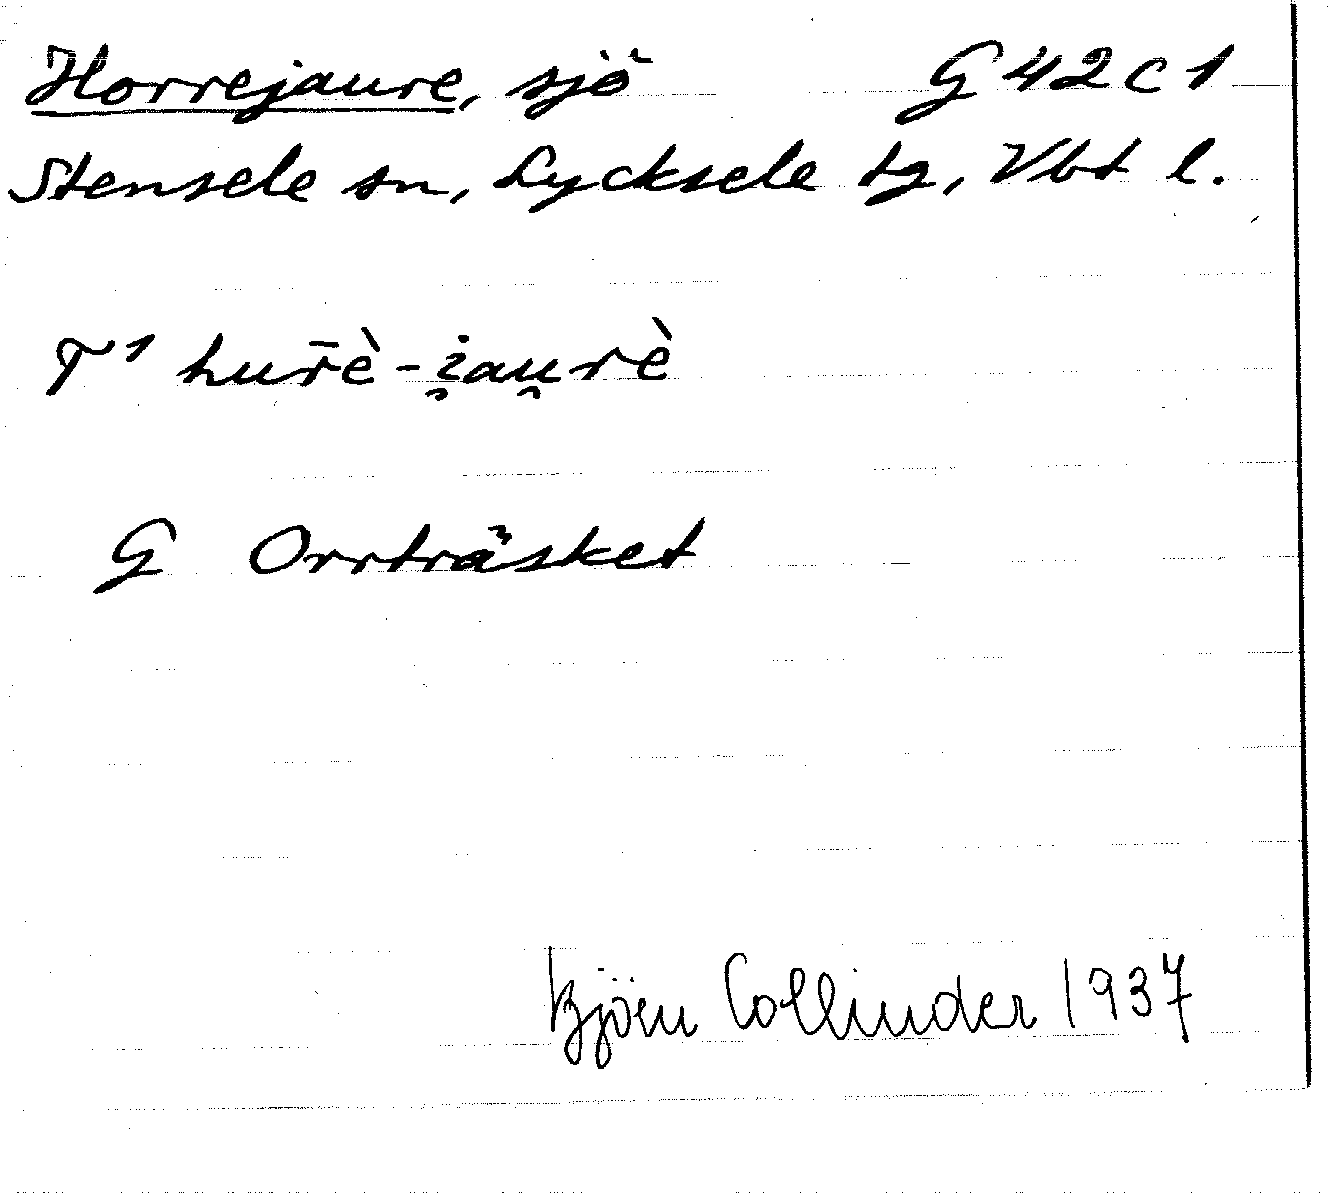 Horrejaure, sjö G 42 c 1
Stensele sn, Lycksele tg, Vbt l.
T¹ hur̄è-i̯au̯rè
G Orrträsket
Björn Collinder 1937